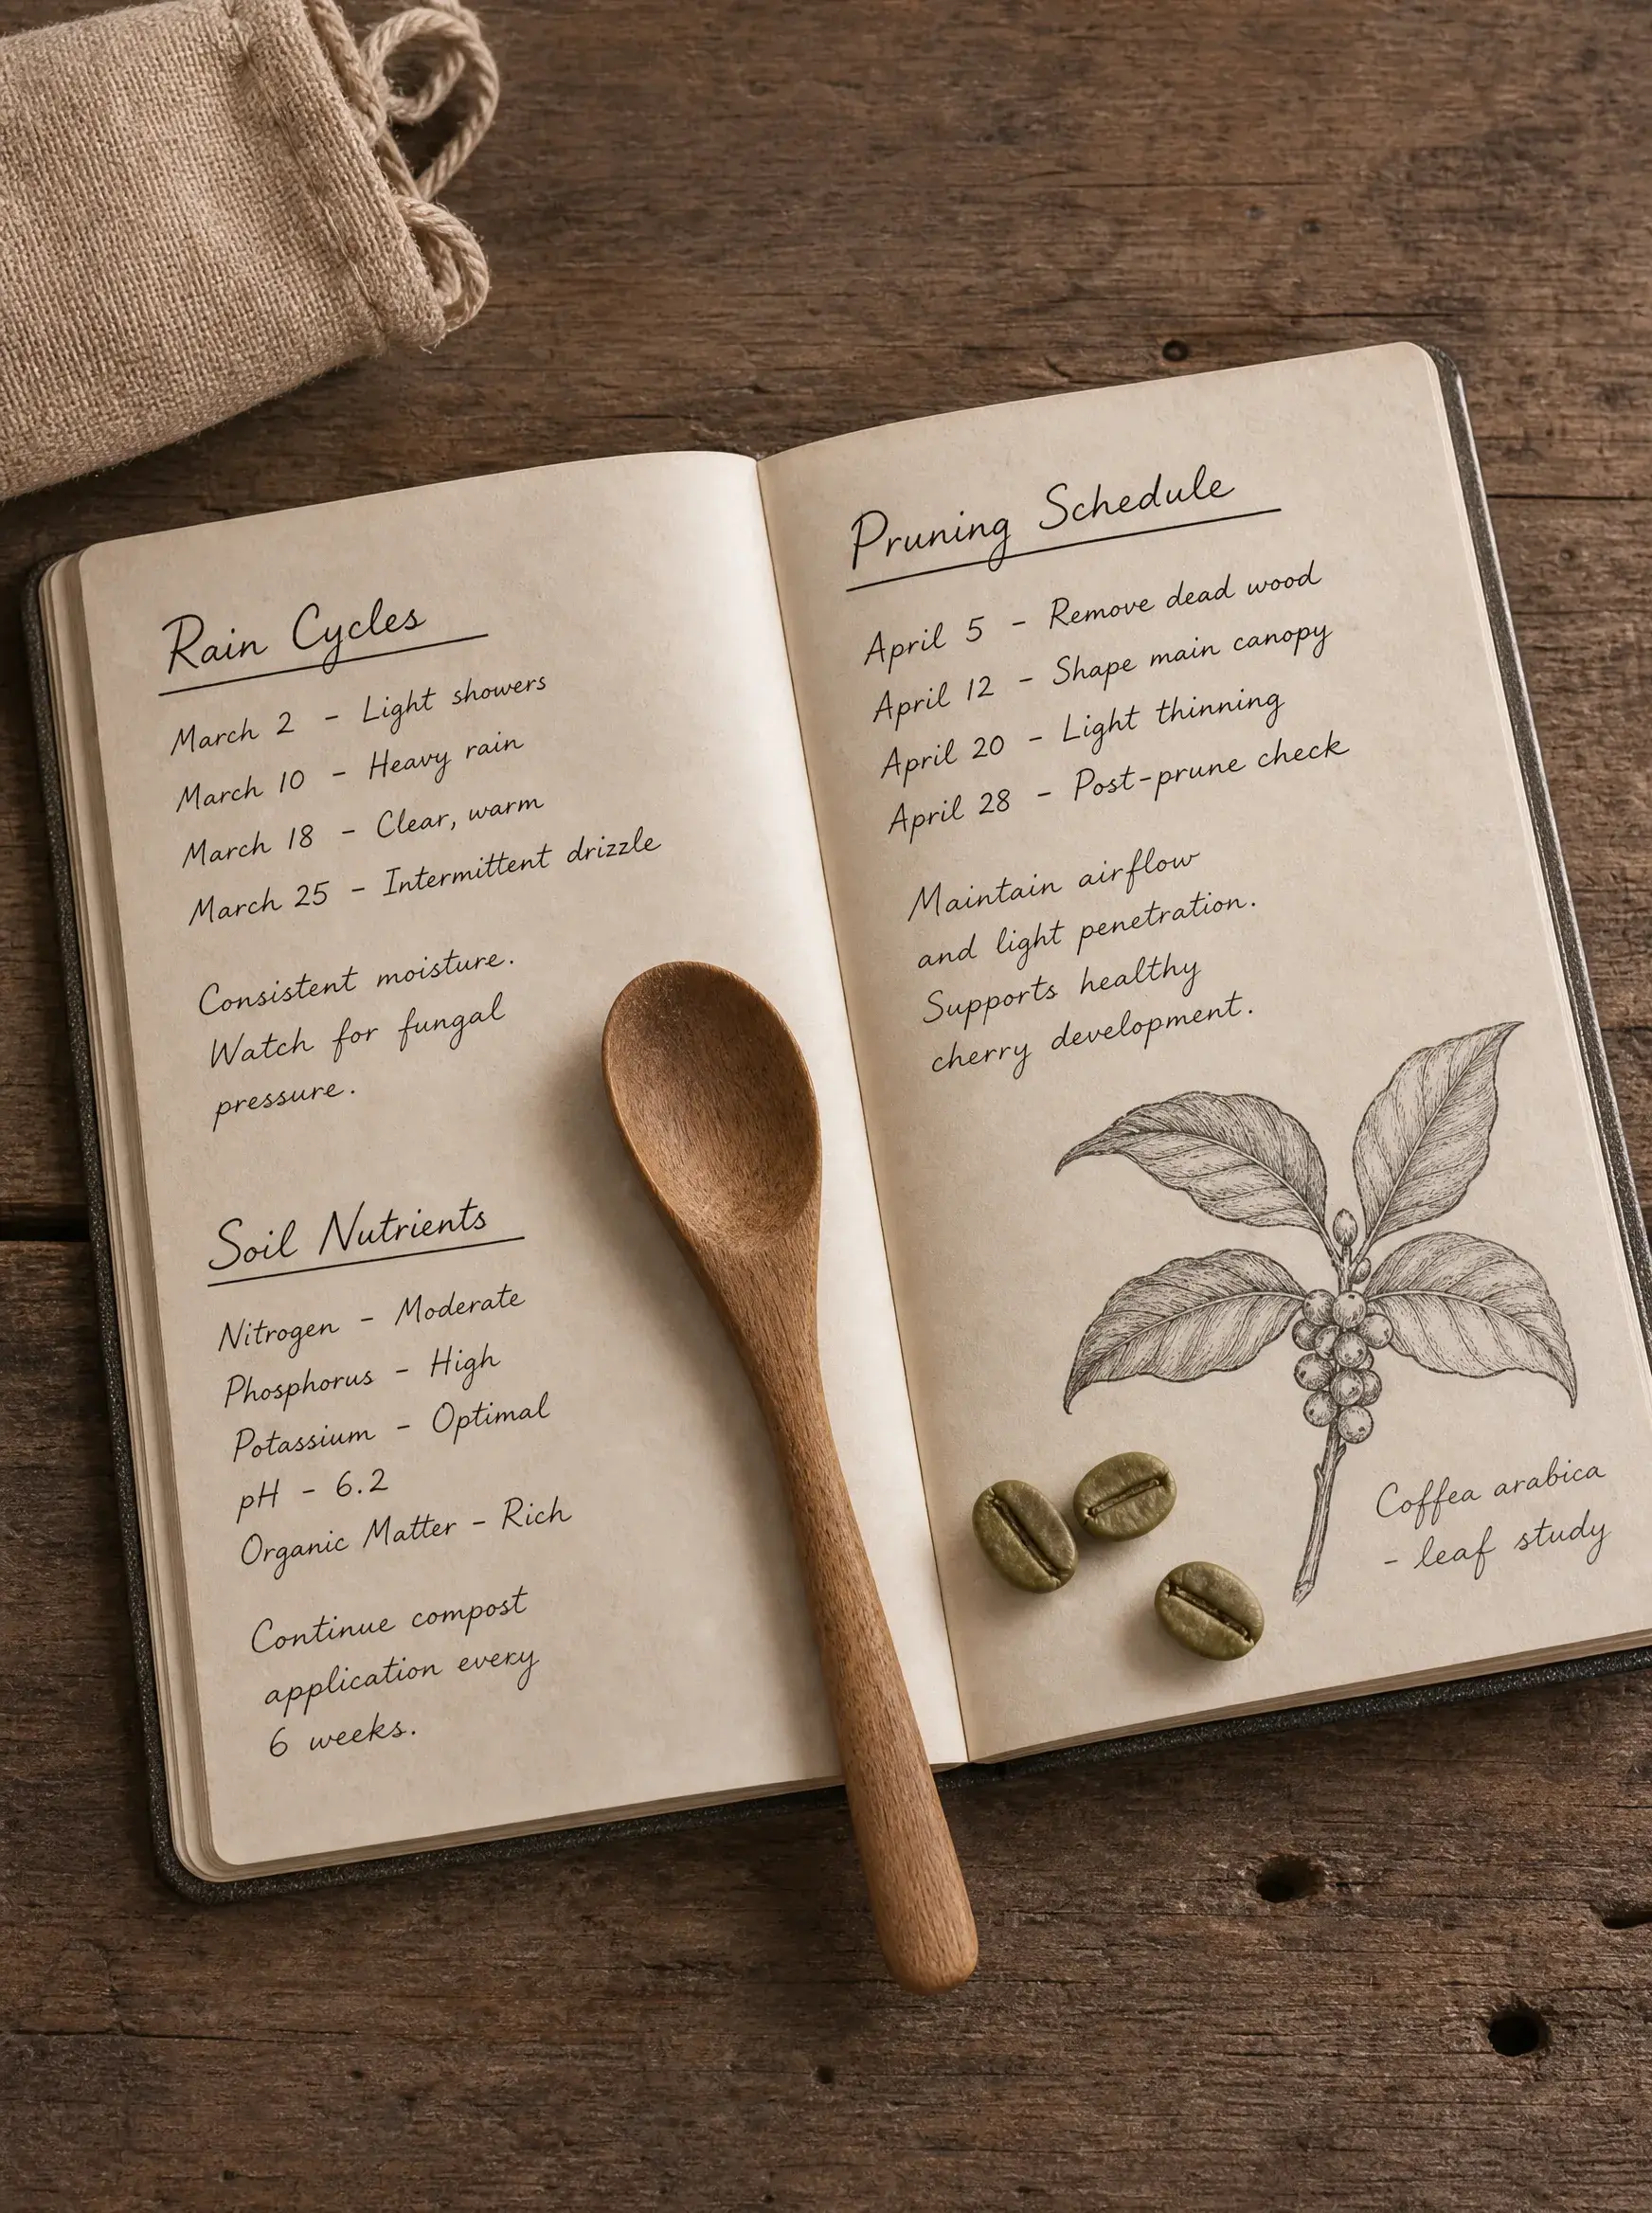 Rain Cycles
March 2 - Light showers
March 10 - Heavy rain
March 18 - Clear, warm
March 25 - Intermittent drizzle
Consistent moisture.
Watch for fungal
pressure.
Soil Nutrients
Nitrogen - Moderate
Phosphorus - High
Potassium - Optimal
pH - 6.2
Organic Matter - Rich
Continue compost
application every
6 weeks.
Pruning Schedule
April 5 - Remove dead wood
April 12 - Shape main canopy
April 20 - Light thinning
April 28 - Post-prune check
Maintain airflow
and light penetration.
Supports healthy
cherry development.
Coffea arabica
- leaf study